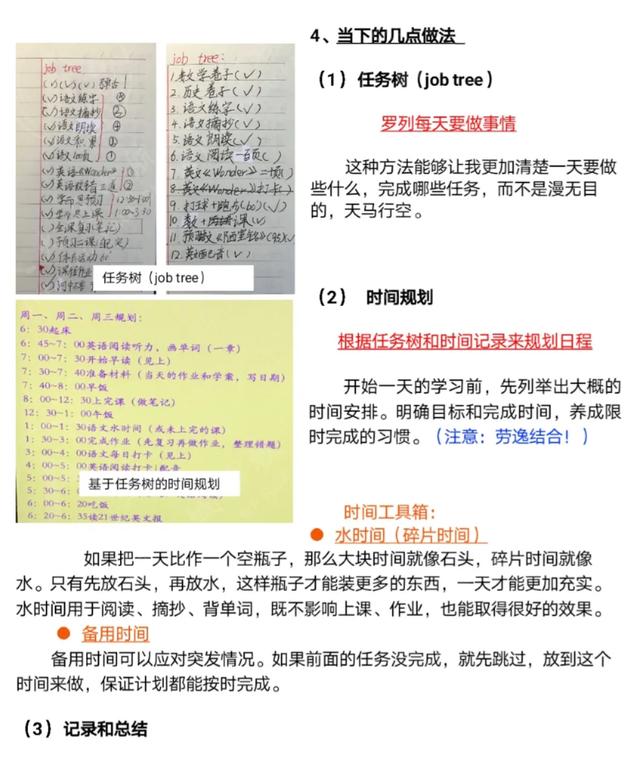 4、当下的几点做法
（1）任务树（job tree）
罗列每天要做事情
这种方法能够让我更加清楚一天要做
些什么，完成哪些任务，而不是漫无目
的，天马行空。
job tree:
(√) 语文练字
(√) 语文摘抄 ②
(√) 语文朗读 ④
job tree:
1.数学卷子(√)
2.历史卷子(√)
3.语文练字(√)
4.语文摘抄(√)
5.语文朗读(√)
6.语文阅读一百页( )
7.英文《Wonder》一撕( )
8.英文《Wonder》打卡( )
12.英语配音(√)
任务树（job tree）
（2） 时间规划
根据任务树和时间记录来规划日程
开始一天的学习前，先列举出大概的
时间安排。明确目标和完成时间，养成限
时完成的习惯。（注意：劳逸结合！）
周一、周二、周三规划：
6：30起床
6：45~7：00英语阅读听力，画单词（一章）
7：00~7：30开始早读（见上）
7：30~7：40准备材料（当天的作业和学案，写日期）
7：40~8：00早饭
8：00~12：30上完课（做笔记）
12：30~1：00午饭
1：00~1：30语文水时间（或未上完的课）
1：30~3：00完成作业（先复习再做作业，整理错题）
3：00~4：00语文每日打卡（见上）
4：00~5：00英语阅读打卡|配音
5：00~5：
5：30~6：
6：00~6：20吃饭
6：20~6：35读21世纪英文报
基于任务树的时间规划
时间工具箱：
● 水时间（碎片时间）
如果把一天比作一个空瓶子，那么大块时间就像石头，碎片时间就像
水。只有先放石头，再放水，这样瓶子才能装更多的东西，一天才能更加充实。
水时间用于阅读、摘抄、背单词，既不影响上课、作业，也能取得很好的效果。
● 备用时间
备用时间可以应对突发情况。如果前面的任务没完成，就先跳过，放到这个
时间来做，保证计划都能按时完成。
（3）记录和总结